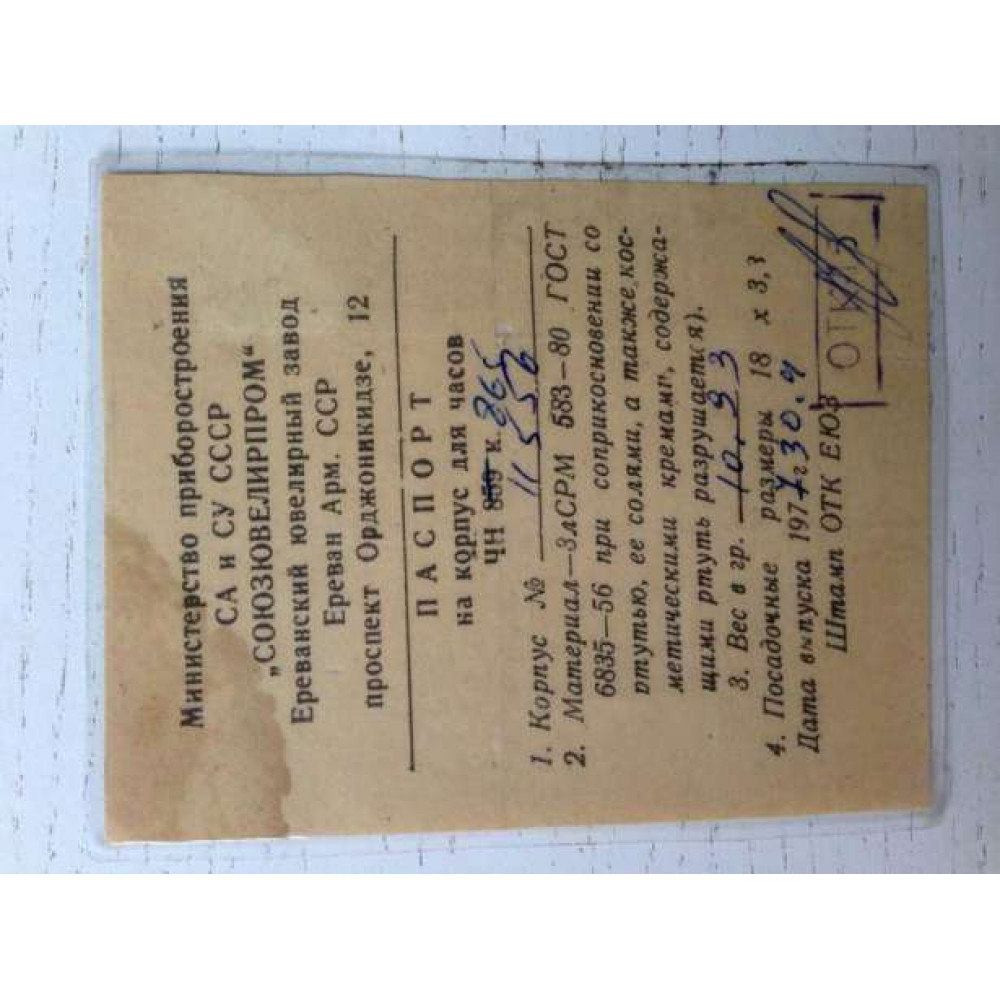 Министерство приборостроения
СА и СУ СССР
„СОЮЗЮВЕЛИРПРОМ“
Ереванский ювелирный завод
Ереван Арм. ССР
проспект Орджоникидзе, 12
ПАСПОРТ
на корпус для часов
ЧН 859 к. 865
1. Корпус № 11556
2. Материал—ЗлСРМ 583—80 ГОСТ
6835—56 при соприкосновении со
ртутью, ее солями, а также кос-
метическими кремами, содержа-
щими ртуть разрушается).
3. Вес в гр. 10.93
4. Посадочные размеры 18 х 3,3
Дата выпуска 197
Штамп ОТК ЕЮЗ
ОТК